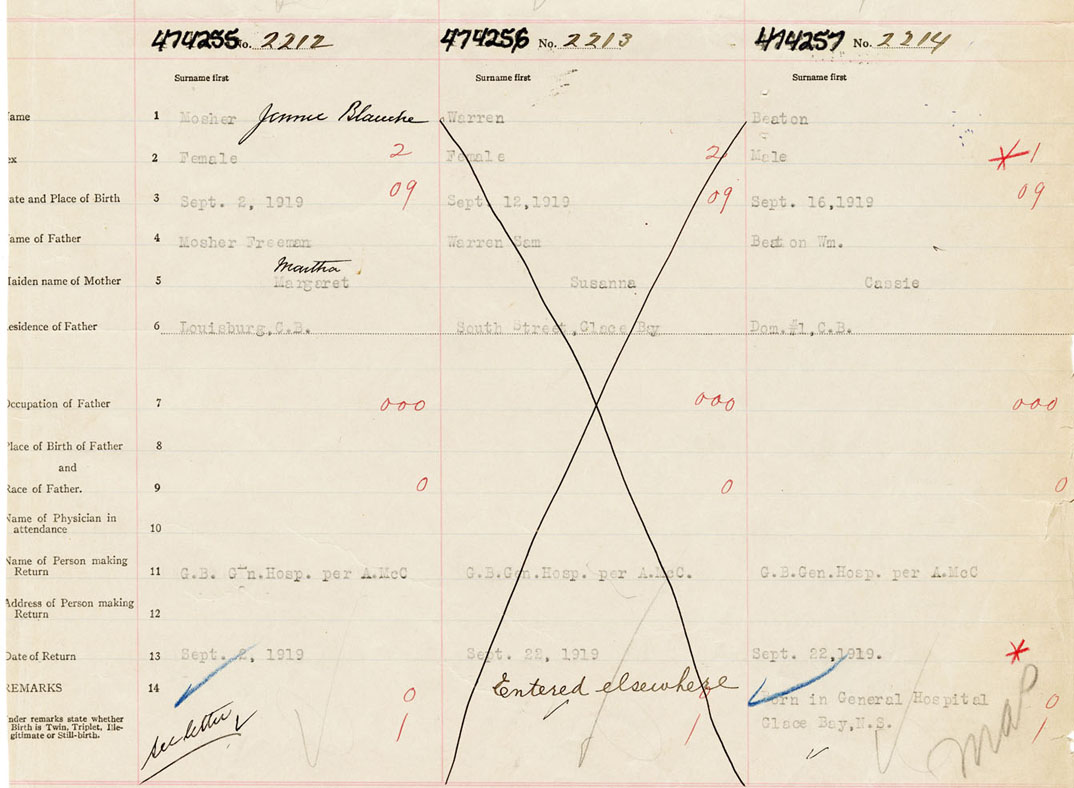 474255 No. 2212 474256 No. 2213 474257 No. 2214
Surname first Surname first Surname first
ame 1 Mosher Jennie Blanche Warren Beaton
ex 2 Female 2 Female 2 Male 1
ate and Place of Birth 3 Sept. 2, 1919 09 Sept. 12,1919 09 Sept. 16,1919 09
ame of Father 4 Mosher Freeman Warren Sam Beaton Wm.
Martha
aiden name of Mother 5 Margaret Susanna Cassie
esidence of Father 6 Louisburg,C.B. South Street,Glace Bay Dom.#1,C.B.
Occupation of Father 7 000 000 000
Place of Birth of Father 8
and
Race of Father. 9 0 0 0
Name of Physician in
attendance 10
Name of Person making
Return 11 G.B. Gen.Hosp. per A.McC G.B.Gen.Hosp. per A.McC. G.B.Gen.Hosp. per A.McC
Address of Person making
Return 12
Date of Return 13 Sept. 2, 1919 Sept. 22, 1919 Sept. 22,1919.
REMARKS 14 0 Entered elsewhere 0 Born in General Hospital 0
nder remarks state whether
Birth is Twin, Triplet, Ille-
gitimate or Still-birth. see letter 1 1 Glace Bay,N.S. 1